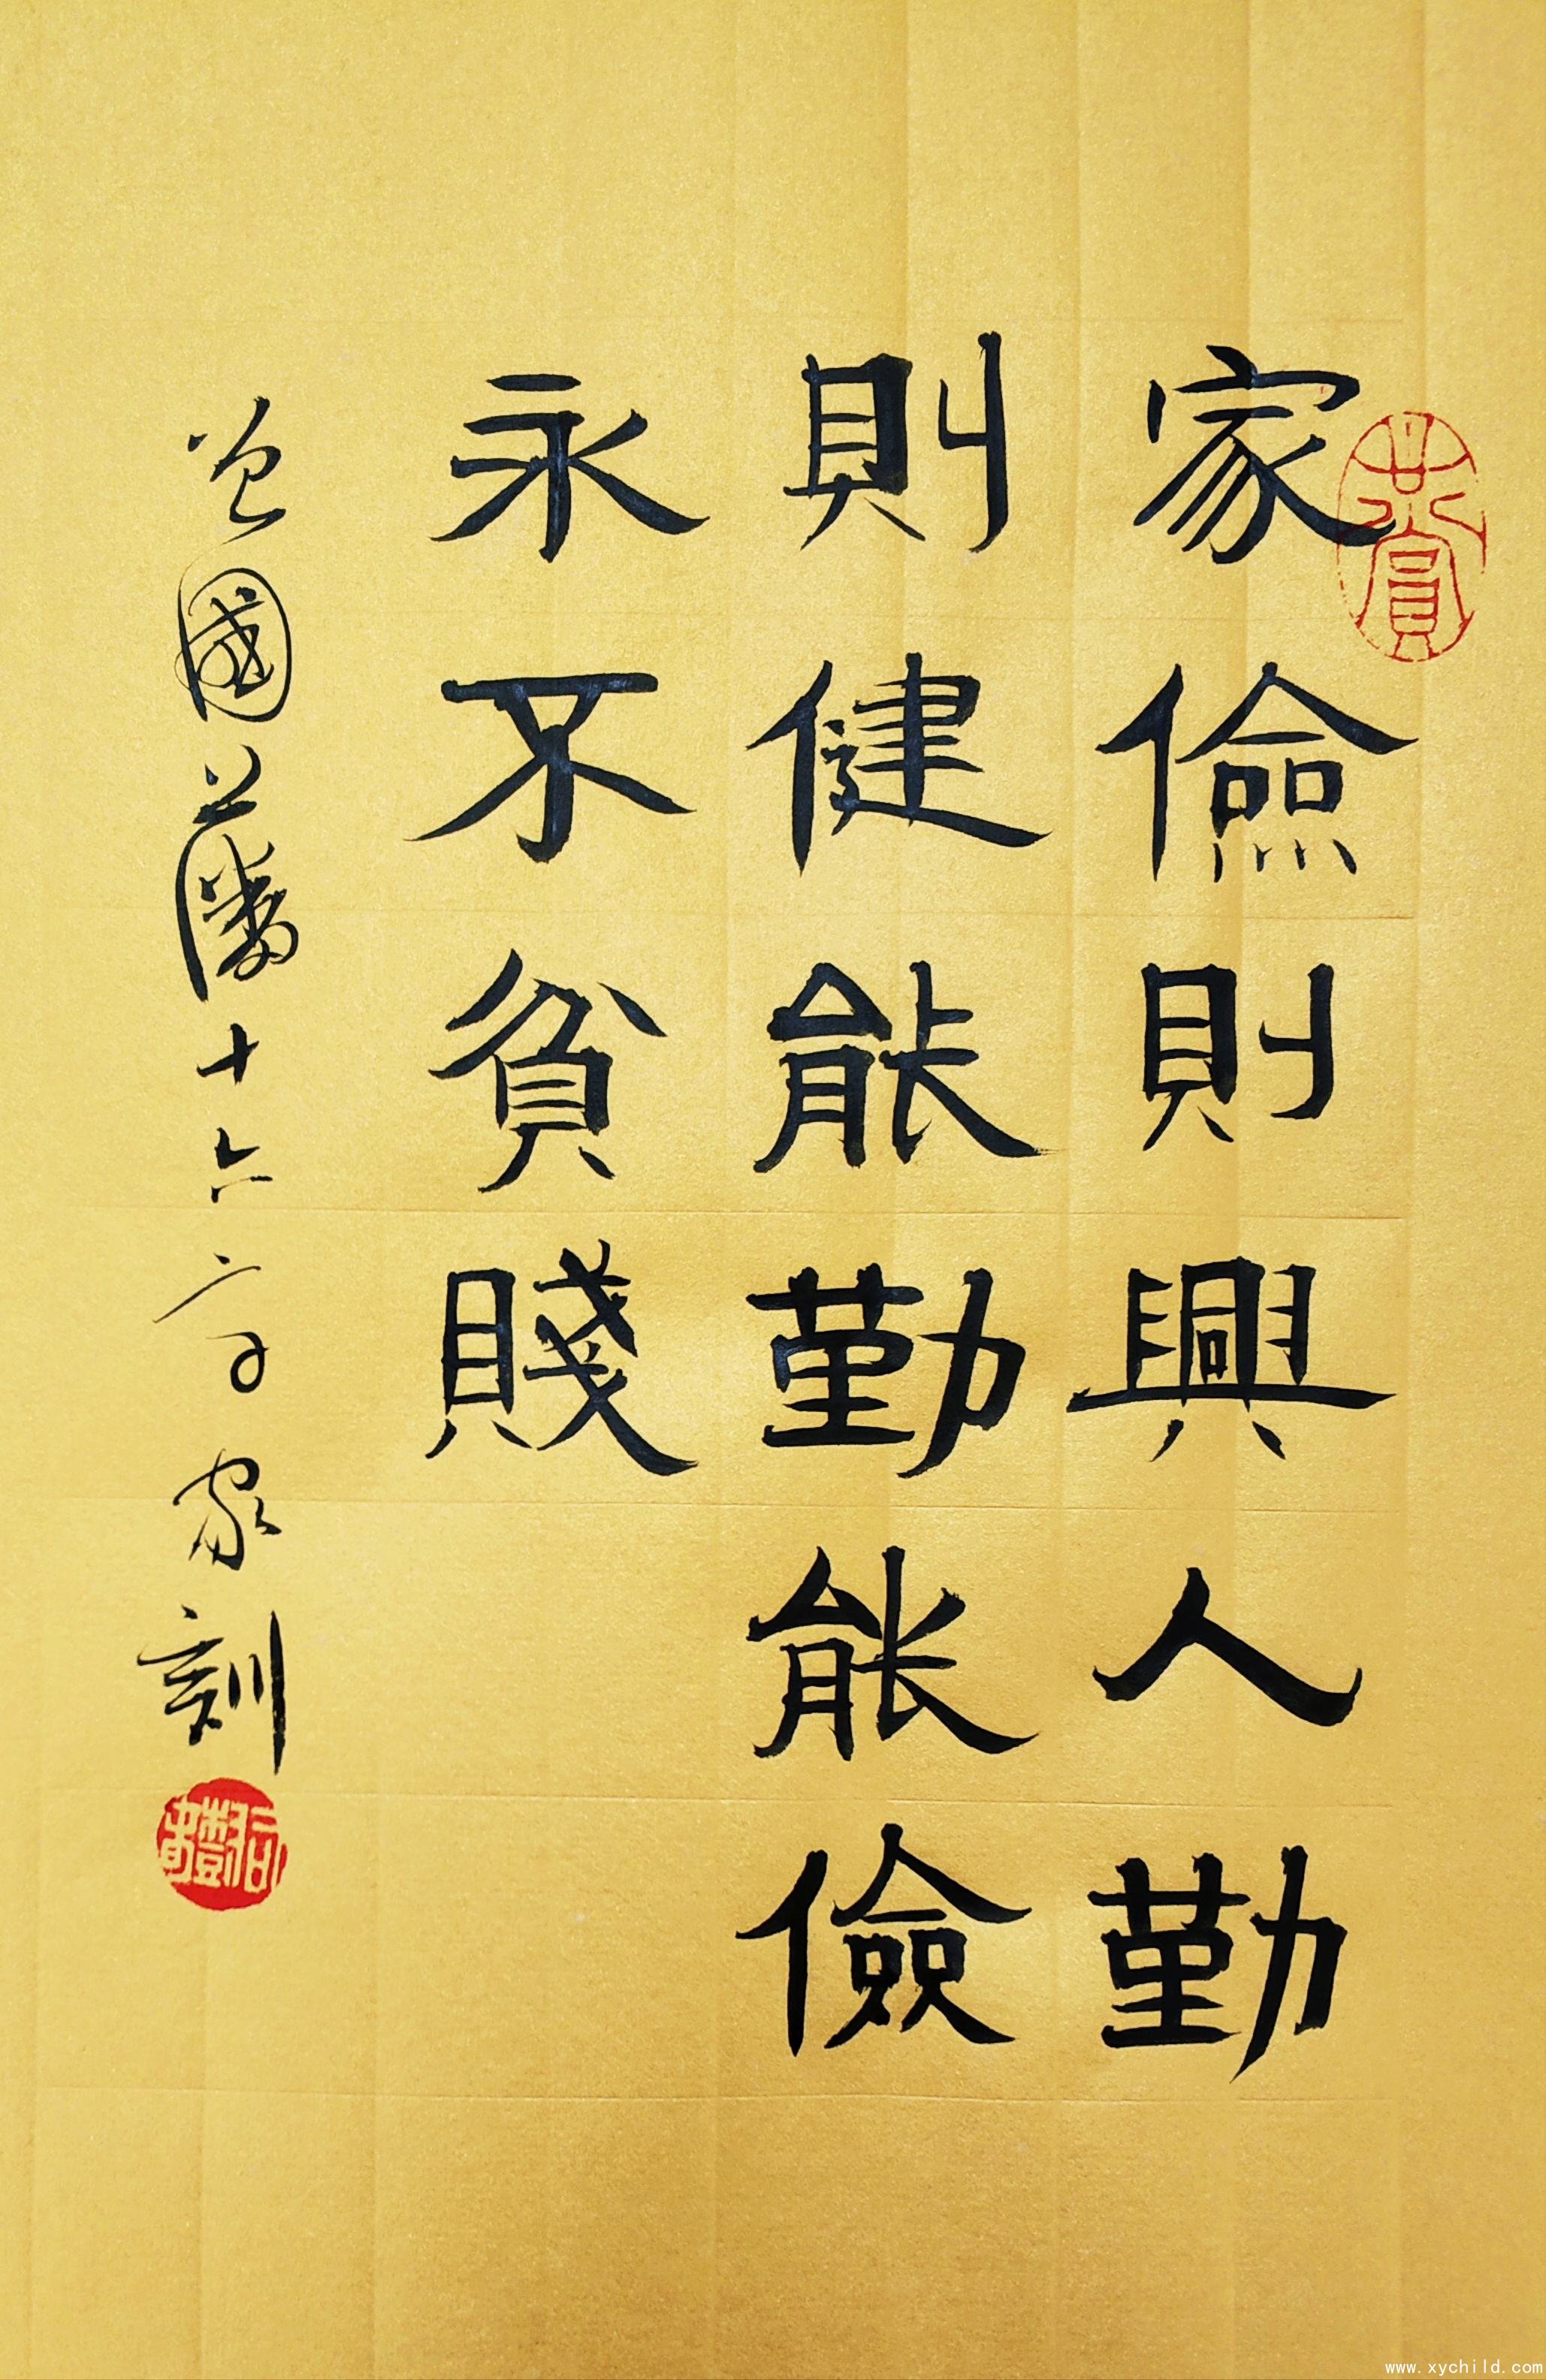 家儉則興人勤
則健能勤能儉
永不貧賤
曾國藩十六字家訓
共賞
www.xychild.com